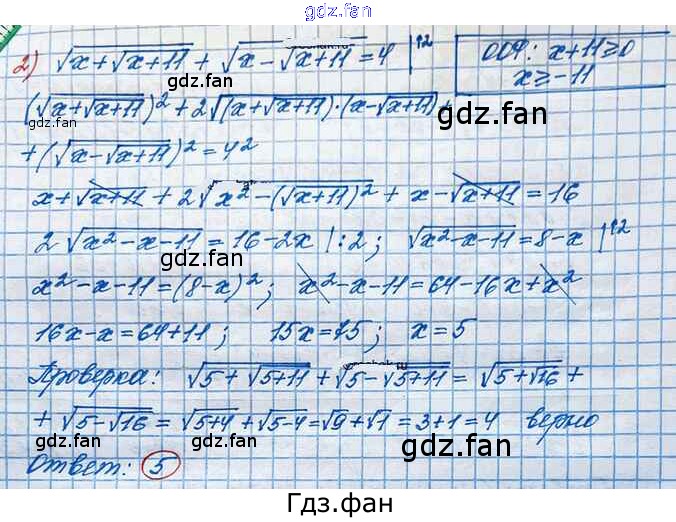 gdz.fan
gdz.fan
2) √(x+√(x+11)) + √(x-√(x+11)) = 4 |↑2
ООФ: x+11≥0
x≥-11
(√(x+√(x+11)))² + 2√((x+√(x+11))·(x-√(x+11))) +
gdz.fan
gdz.fan
+ (√(x-√(x+11)))² = 4²
x+√(x+11) + 2√(x²-(√(x+11))²) + x-√(x+11) = 16
2√(x²-x-11) = 16-2x |:2; √(x²-x-11) = 8-x |↑2
gdz.fan
gdz.fan
x²-x-11=(8-x)²; x²-x-11=64-16x+x²
16x-x=64+11; 15x=75; x=5
gdz.fan
gdz.fan
Проверка: √(5+√(5+11)) + √(5-√(5+11)) = √(5+√16) +
+ √(5-√16) = √(5+4) + √(5-4) = √9 + √1 = 3+1 = 4 верно
gdz.fan
gdz.fan
Ответ: 5
Гдз.фан